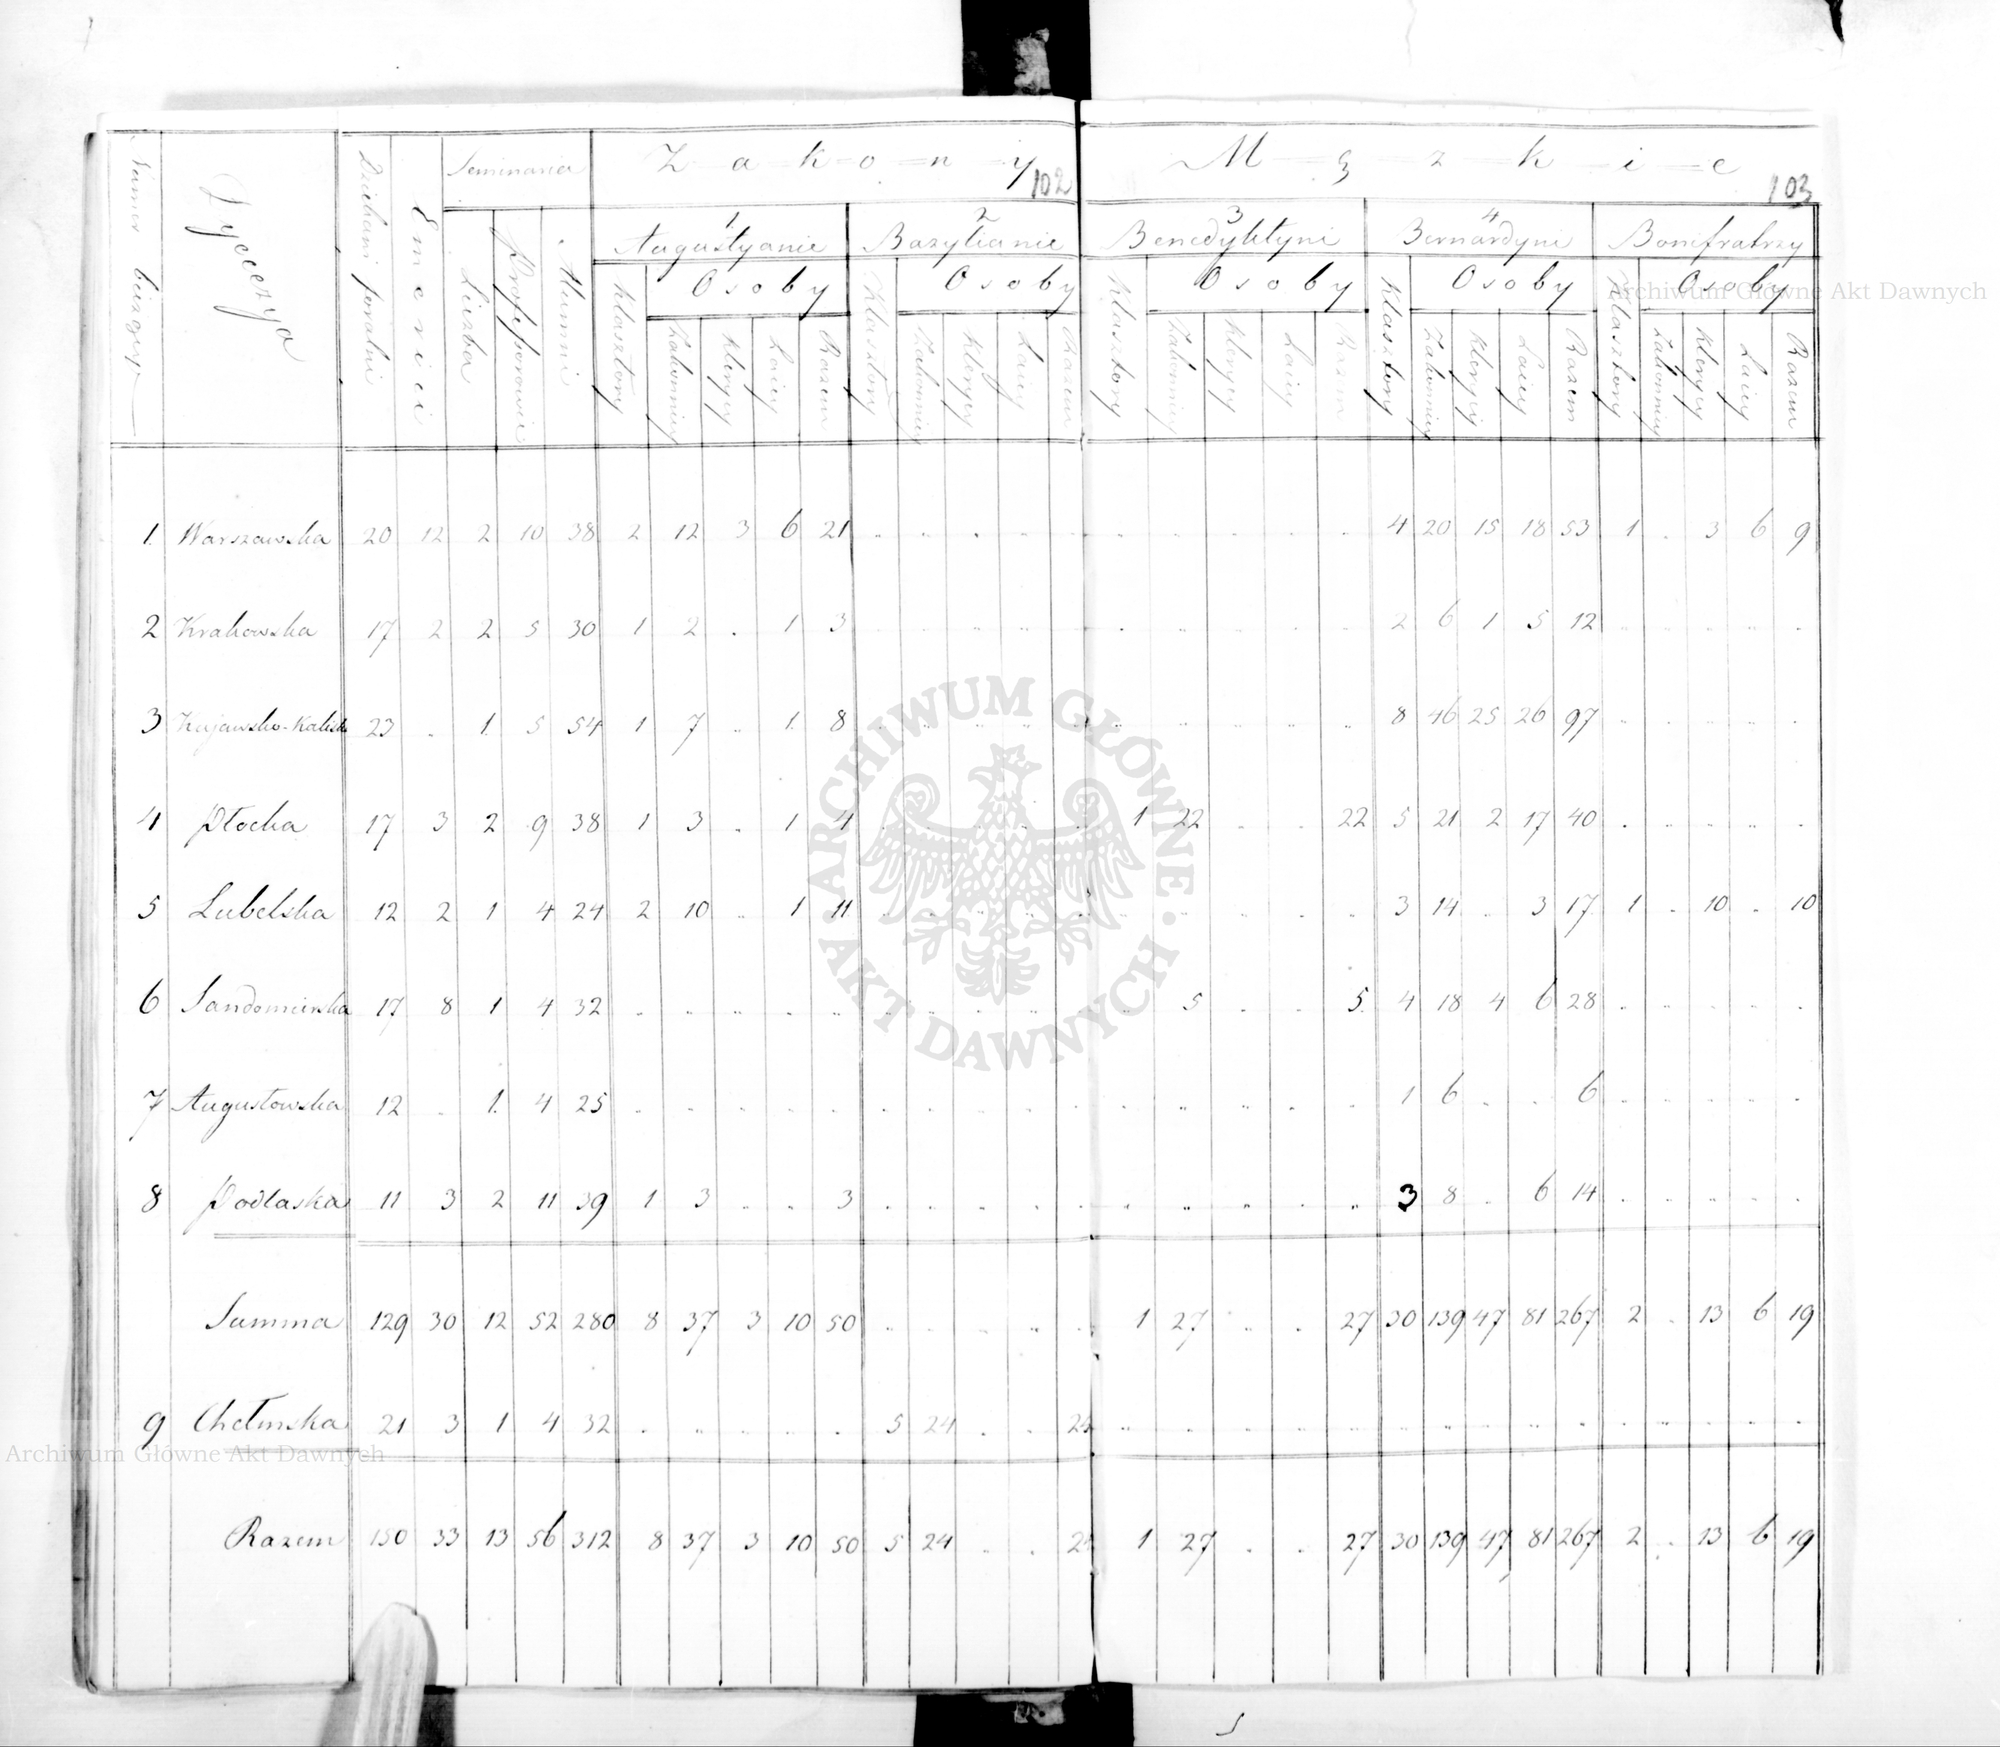 Z a k o n y
102
M ę z k i e
103
Numer bieżący
Dyecezya
Dziekani foralni
Emerici
Seminaria
Liczba
Professorowie
Alumni
1 Augustyanie
2 Bazylianie
3 Benedyktyni
4 Bernardyni
Bonifratrzy
Osoby Osoby Osoby Osoby Osoby
Klasztory Zakonnicy Klerycy Laicy Razem Klasztory Zakonnicy Klerycy Laicy Razem Klasztory Zakonnicy Klerycy Laicy Razem Klasztory Zakonnicy Klerycy Laicy Razem Klasztory Zakonnicy Klerycy Laicy Razem
1. Warszawska 20 12 2 10 38 2 12 3 6 21 . . . . . . . . . . 4 20 15 18 53 1 . 3 6 9
2 Krakowska 17 2 2 5 30 1 2 . 1 3 . . . . . . . . . . 2 6 1 5 12 . . . . .
3 Kujawsko-Kalisk 23 . 1. 5 54 1 7 . 1. 8 . . . . . . . . . . 8 46 25 26 97 . . . . .
4 Płocka 17 3 2 9 38 1 3 . 1 4 . . . . . 1 22 . . 22 5 21 2 17 40 . . . . .
5 Lubelska 12 2 1 4 24 2 10 . 1 11 . . . . . . . . . . 3 14 . 3 17 1 . 10 . 10
6 Sandomirska 17 8 1 4 32 . . . . . . . . . . . 5 . . 5. 4 18 4 6 28 . . . . .
7 Augustowska 12 . 1. 4 25 . . . . . . . . . . . . . . . 1 6 . . 6 . . . . .
8 Podlaska 11 3 2 11 39 1 3 . . 3 . . . . . . . . . . 3 8 . 6 14 . . . . .
Summa 129 30 12 52 280 8 37 3 10 50 . . . . . 1 27 . . 27 30 139 47 81 267 2 . 13 6 19
9 Chełmska 21 3 1 4 32 . . . . . 5 24 . . 24 . . . . . . . . . . . . . . .
Razem 150 33 13 56 312 8 37 3 10 50 5 24 . . 24 1 27 . . 27 30 139 47 81 267 2 . 13 6 19
Archiwum Główne Akt Dawnych
ARCHIWUM GŁÓWNE · AKT DAWNYCH ·
Archiwum Główne Akt Dawnych